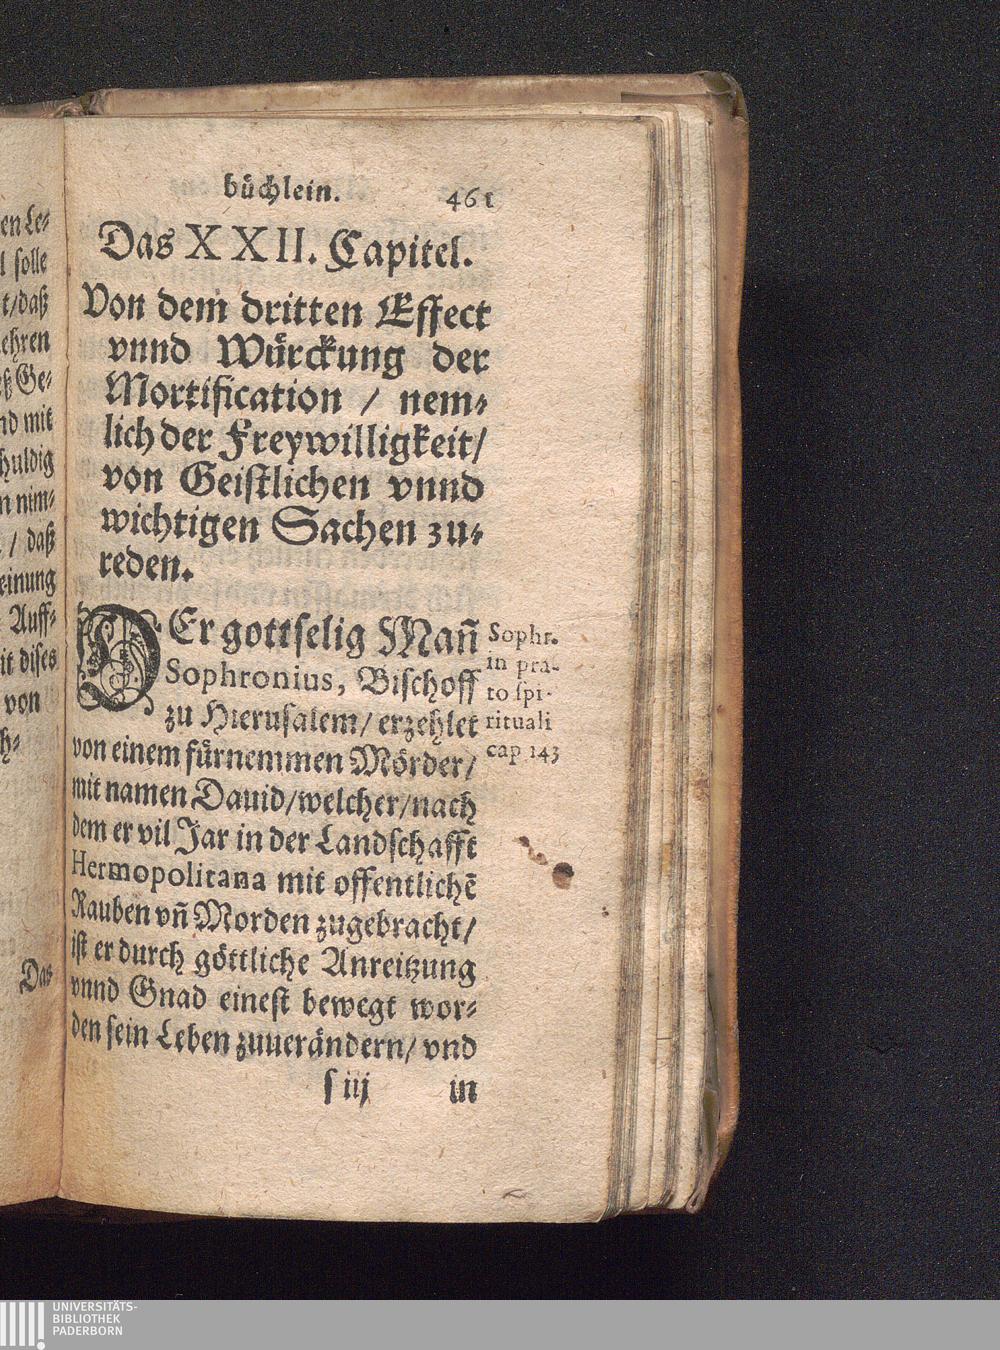 en Le⸗
l solle
t/daß
ehren
eß Ge⸗
nd mit
huldig
n nim⸗
/ daß
einung
Auff⸗
it dises
von
h⸗
Das
büchlein. 461
Das XXII. Capitel.
Von dem dritten Effect
vnnd Würckung der
Mortification / nem⸗
lich der Freywilligkeit/
von Geistlichen vnnd
wichtigen Sachen zu⸗
reden.
DEr gottselig Mañ
Sophronius, Bischoff
zu Hierusalem/ erzehlet
von einem fürnemmen Mörder/
mit namen Dauid/welcher/nach
dem er vil Jar in der Landschafft
Hermopolitana mit offentlichē
Rauben vñ Morden zugebracht/
ist er durch göttliche Anreitzung
vnnd Gnad einest bewegt wor⸗
den sein Leben zuuerändern/ vnd
Sophr.
in pra-
to spi-
rituali
cap 143
s iij in
UNIVERSITÄTS-
BIBLIOTHEK
PADERBORN